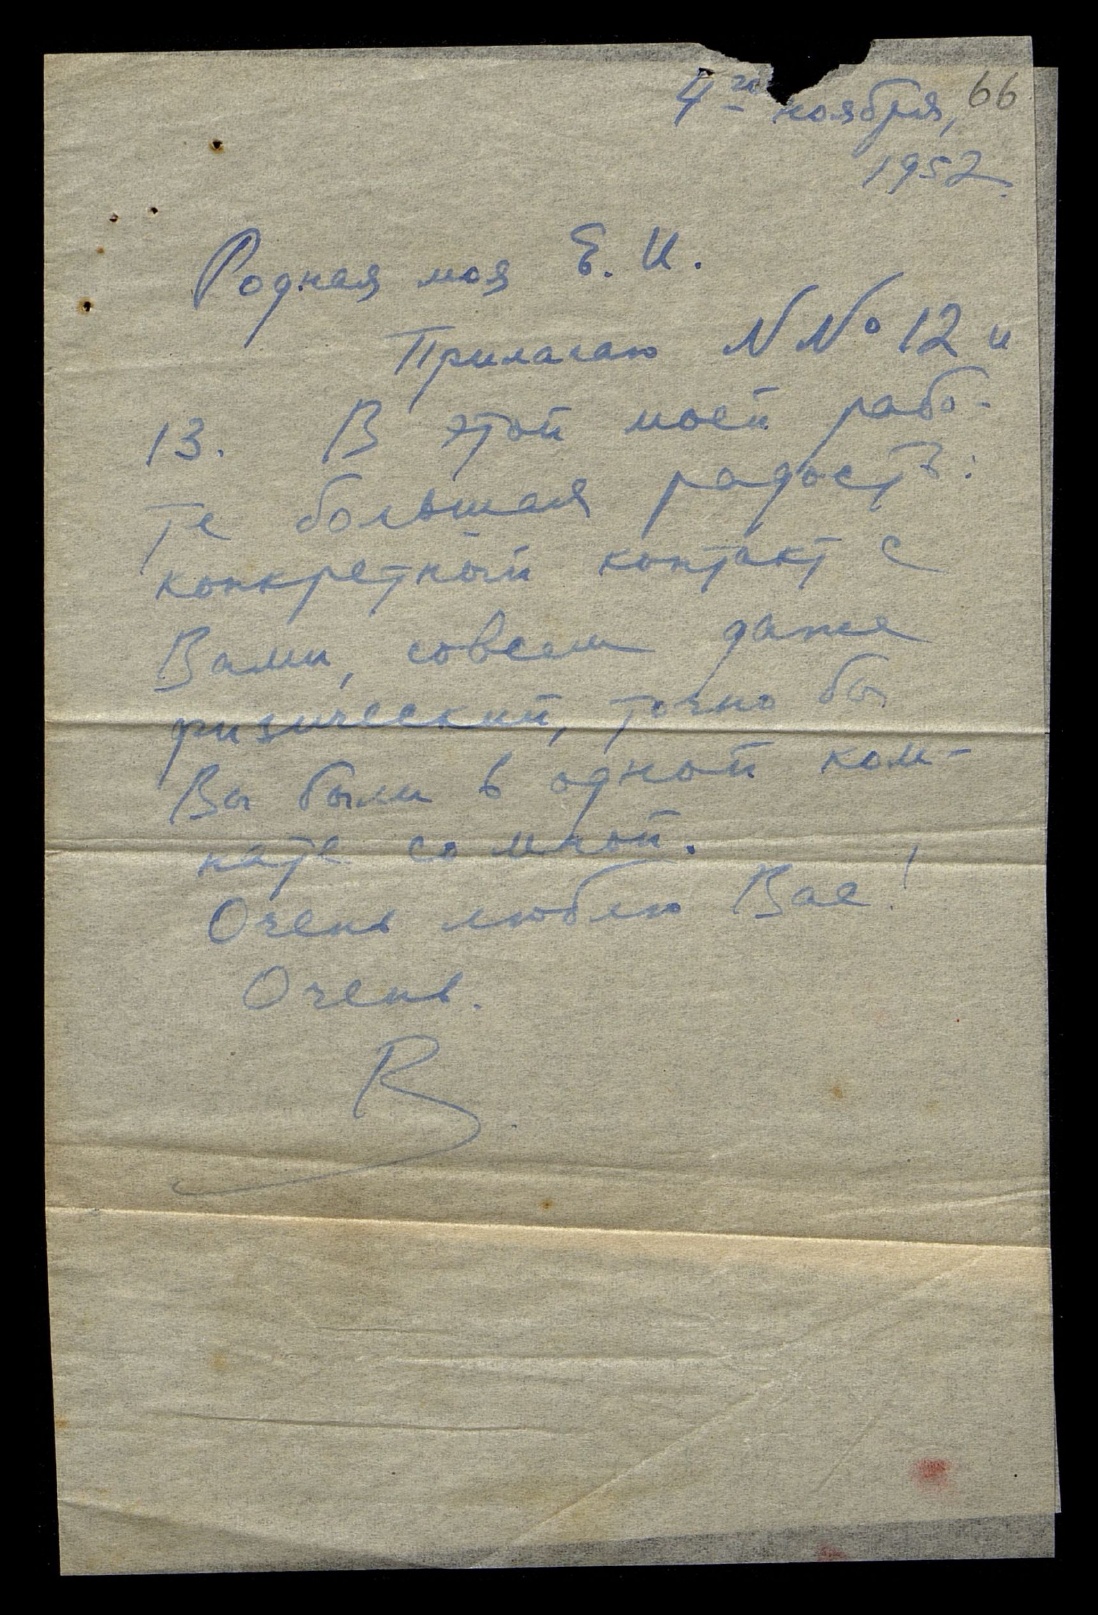 4го ноября, 66
1952.
Родная моя Е. И.
Прилагаю NNo 12 и
13. В этой моей рабо-
те большая радость:
конкретный контакт с
Вами, совсем даже
физический, точно бы
Вы были в одной ком-
нате со мной.
Очень люблю Вас!
Очень.
В